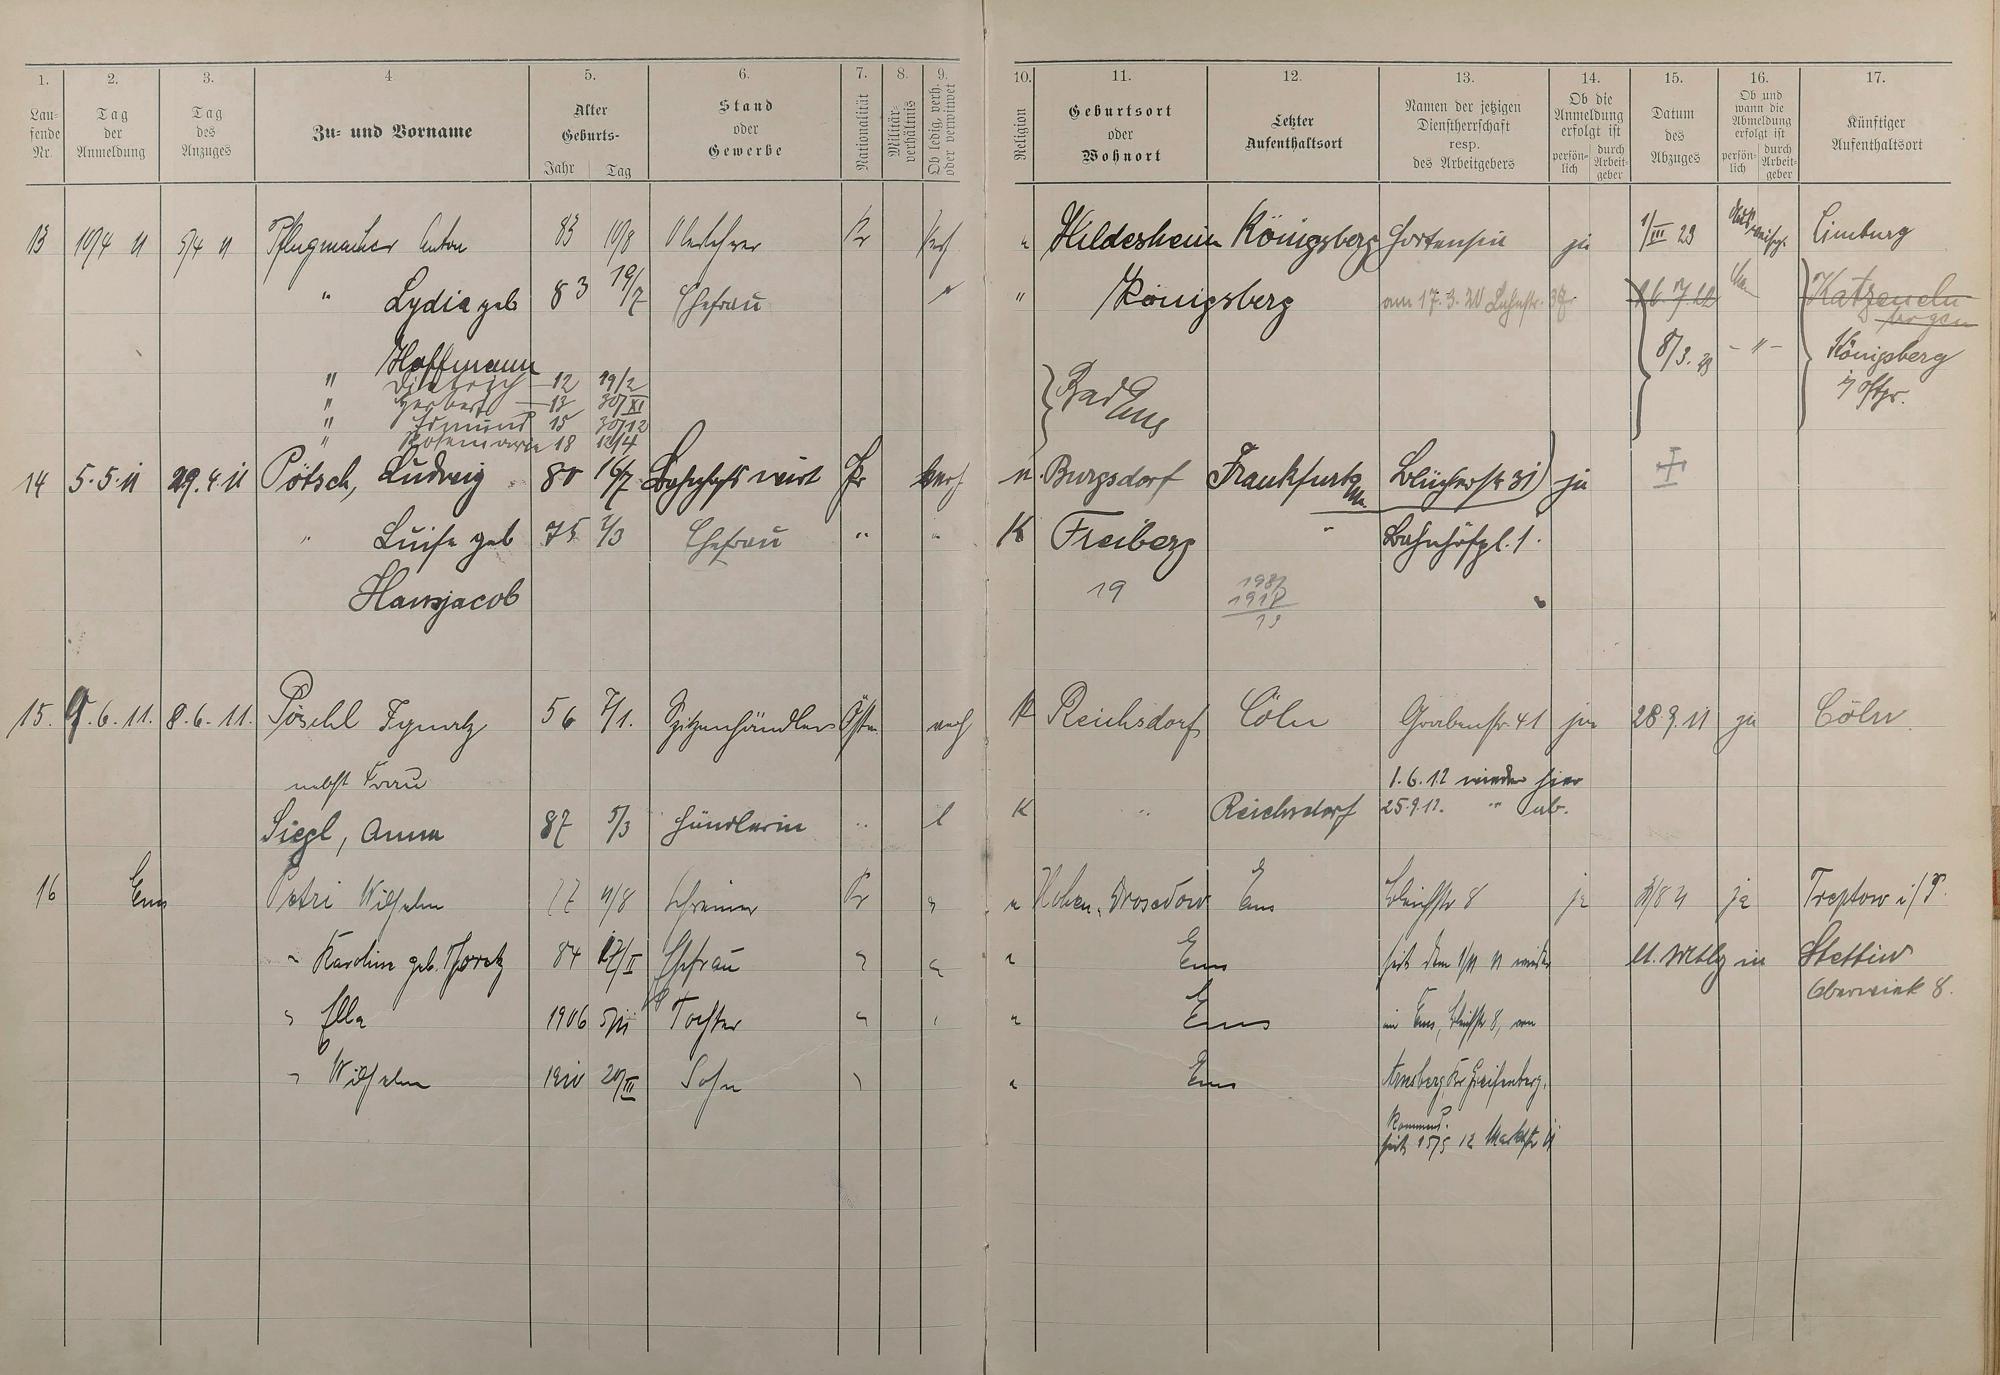 1. 2. 3. 4 5. 6. 7. 8. 9. 10. 11. 12. 13. 14. 15. 16. 17.
Lau-
fende
Nr.
Tag
der
Anmeldung
Tag
des
Anzuges
Zu- und Vorname
Alter
Geburts-
Jahr Tag
Stand
oder
Gewerbe
Nationalität
Militär-
verhältnis
Ob ledig, verh.
oder verwitwet
Religion
Geburtsort
oder
Wohnort
Letzter
Aufenthaltsort
Namen der jetzigen
Dienstherrschaft
resp.
des Arbeitgebers
Ob die
Anmeldung
erfolgt ist
persön-
lich
durch
Arbeit-
geber
Datum
des
Abzuges
Ob und
wann die
Abmeldung
erfolgt ist
persön-
lich
durch
Arbeit-
geber
Künftiger
Aufenthaltsort
13 10/4 11 5/4 11 Pflugmacher Anton 83 10/8 Oberlehrer Pr verh " Hildesheim Königsberg ja 1/III 23 Limburg
" Lydia geb 83 19/7 Ehefrau " " Königsberg am 17.3.20 Lahnstr. Katzeneln
bogen
Hoffmann 8/3. 23 - " - Königsberg
" Dietrich 12 19/2 Bad Ems i/ Ostpr.
" Herbert 13 30/XI
" Edmund 15 30/12
" Rosemarie 18 12/4
14 5.5.11 29.4.11 Pötsch, Ludwig 80 16/7 Bahnhofswirt Pr verh Burgsdorf Frankfurt a/M Blücherstr 31 ja
" Luise geb 75 1/3 Ehefrau " " K Freiberg " Bahnhofpl. 1.
Hansjacob 19
1918
19
15. 9.6.11. 8.6.11. Pöschl Ignatz 56 7/1. Spitzenhändler Östr. verh K Reichsdorf Cöln Grabenstr 41 ja 28.9.11 ja Cöln.
nebst Frau 1.6.12 wieder hier
Siegl, Anna 87 5/3 Händlerin " l K " Reichsdorf 25.9.12. " ab.
16 Ems Petri Wilhelm 77 11/8 Schreiner Pr " " Hohen-Drosedow Ems Bleichstr 8 ja ja Treptow i/P.
" Karoline geb. 84 Ehefrau " " " Ems seit dem 1/11 11 wieder lt. Mttlg in Stettin
Oberwiek 8.
" Ella 1906 Tochter " " " Ems in Ems, Bleichstr 8, von
" Wilhelm 1910 20/III Sohn " " Ems Arnsberg, Kr. Greifenberg,
kommend.
seit 15/5 12 Marktstr 11